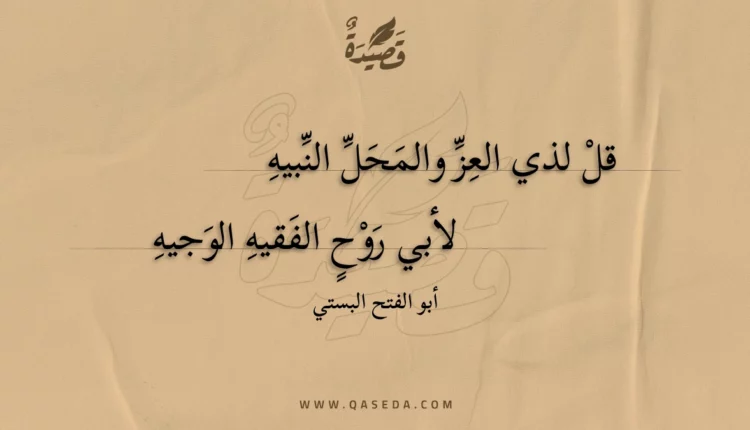 قَصِيْدَةٌ
قلْ لذي العِزِّ والمَحَلِّ النَّبيهِ
لأبي رَوْحٍ الفَقيهِ الوَجيهِ
أبو الفتح البستي
WWW.QASEDA.COM